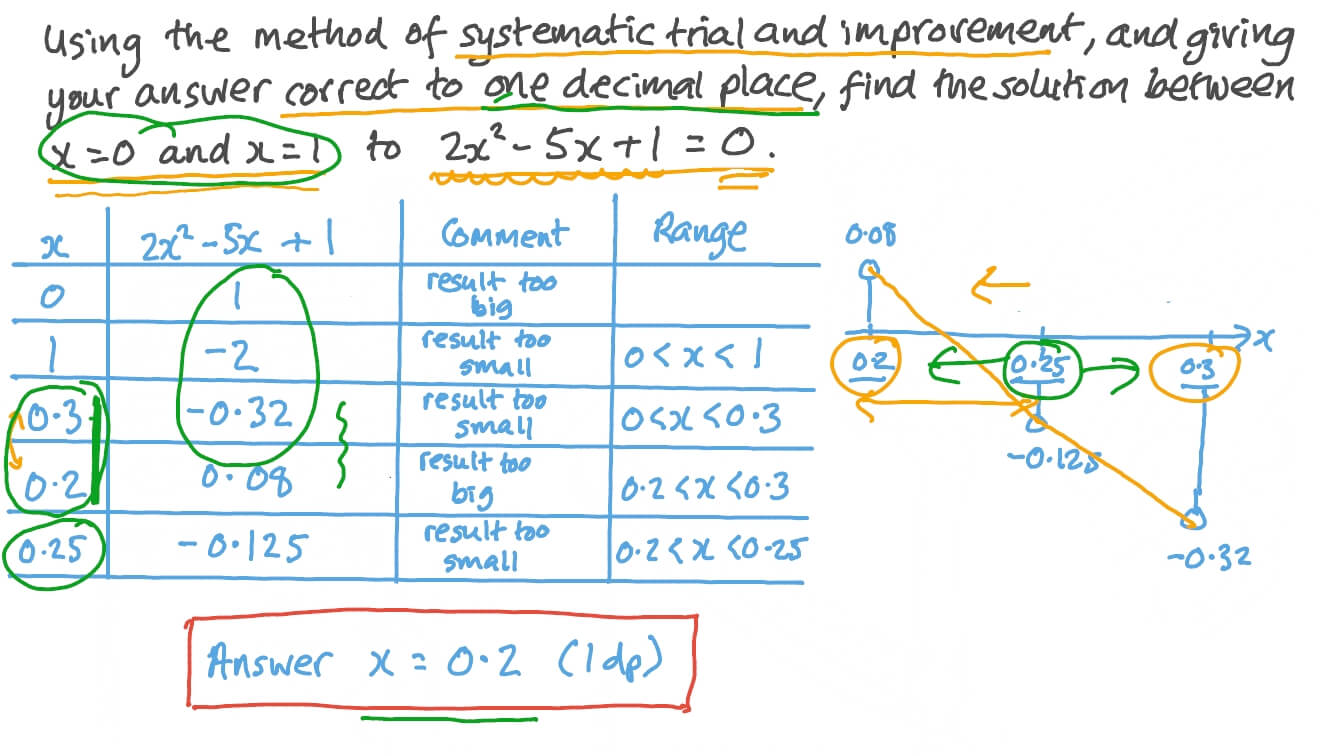 Using the method of systematic trial and improvement, and giving
your answer correct to one decimal place, find the solution between
x=0 and x=1 to 2x²-5x+1=0.
x 2x²-5x+1 Comment Range
0 1 result too big
1 -2 result too small 0<x<1
0.3 -0.32 result too small 0<x<0.3
0.2 0.08 result too big 0.2<x<0.3
0.25 -0.125 result too small 0.2<x<0.25
0.08
x
0.2 0.25 0.3
-0.125
-0.32
Answer x=0.2 (1dp)